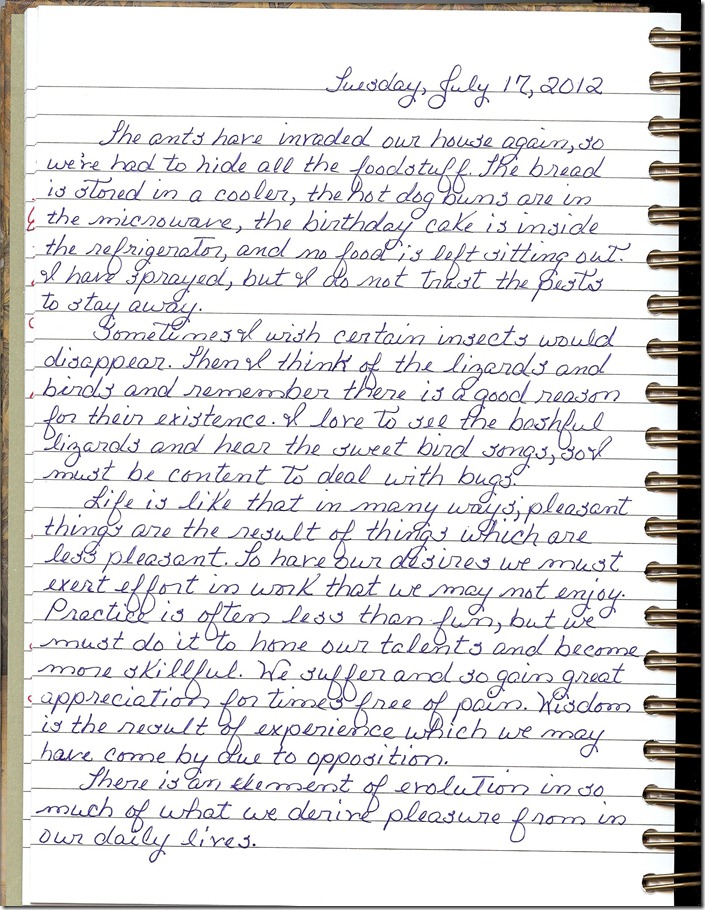 Tuesday, July 17, 2012
The ants have invaded our house again, so
we've had to hide all the foodstuff. The bread
is stored in a cooler, the hot dog buns are in
the microwave, the birthday cake is inside
the refrigerator, and no food is left sitting out.
I have sprayed, but I do not trust the pests
to stay away.
Sometimes I wish certain insects would
disappear. Then I think of the lizards and
birds and remember there is a good reason
for their existence. I love to see the bashful
lizards and hear the sweet bird songs, so I
must be content to deal with bugs.
Life is like that in many ways; pleasant
things are the result of things which are
less pleasant. To have our desires we must
exert effort in work that we may not enjoy.
Practice is often less than fun, but we
must do it to hone our talents and become
more skillful. We suffer and so gain great
appreciation for times free of pain. Wisdom
is the result of experience which we may
have come by due to opposition.
There is an element of evolution in so
much of what we derive pleasure from in
our daily lives.